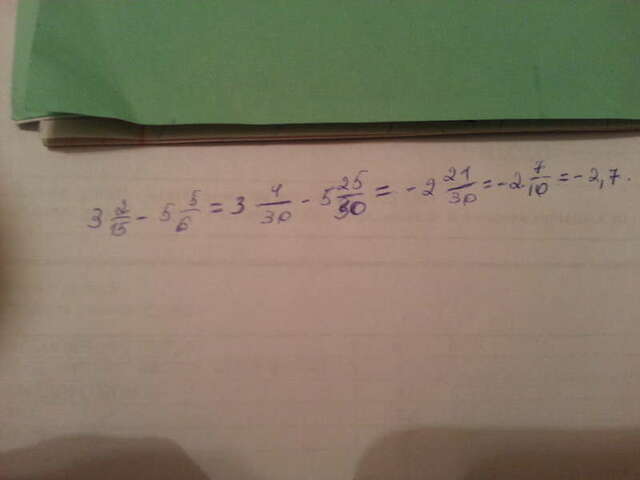 3 2/15 - 5 5/6 = 3 4/30 - 5 25/30 = - 2 21/30 = -2 7/10 = -2,7.